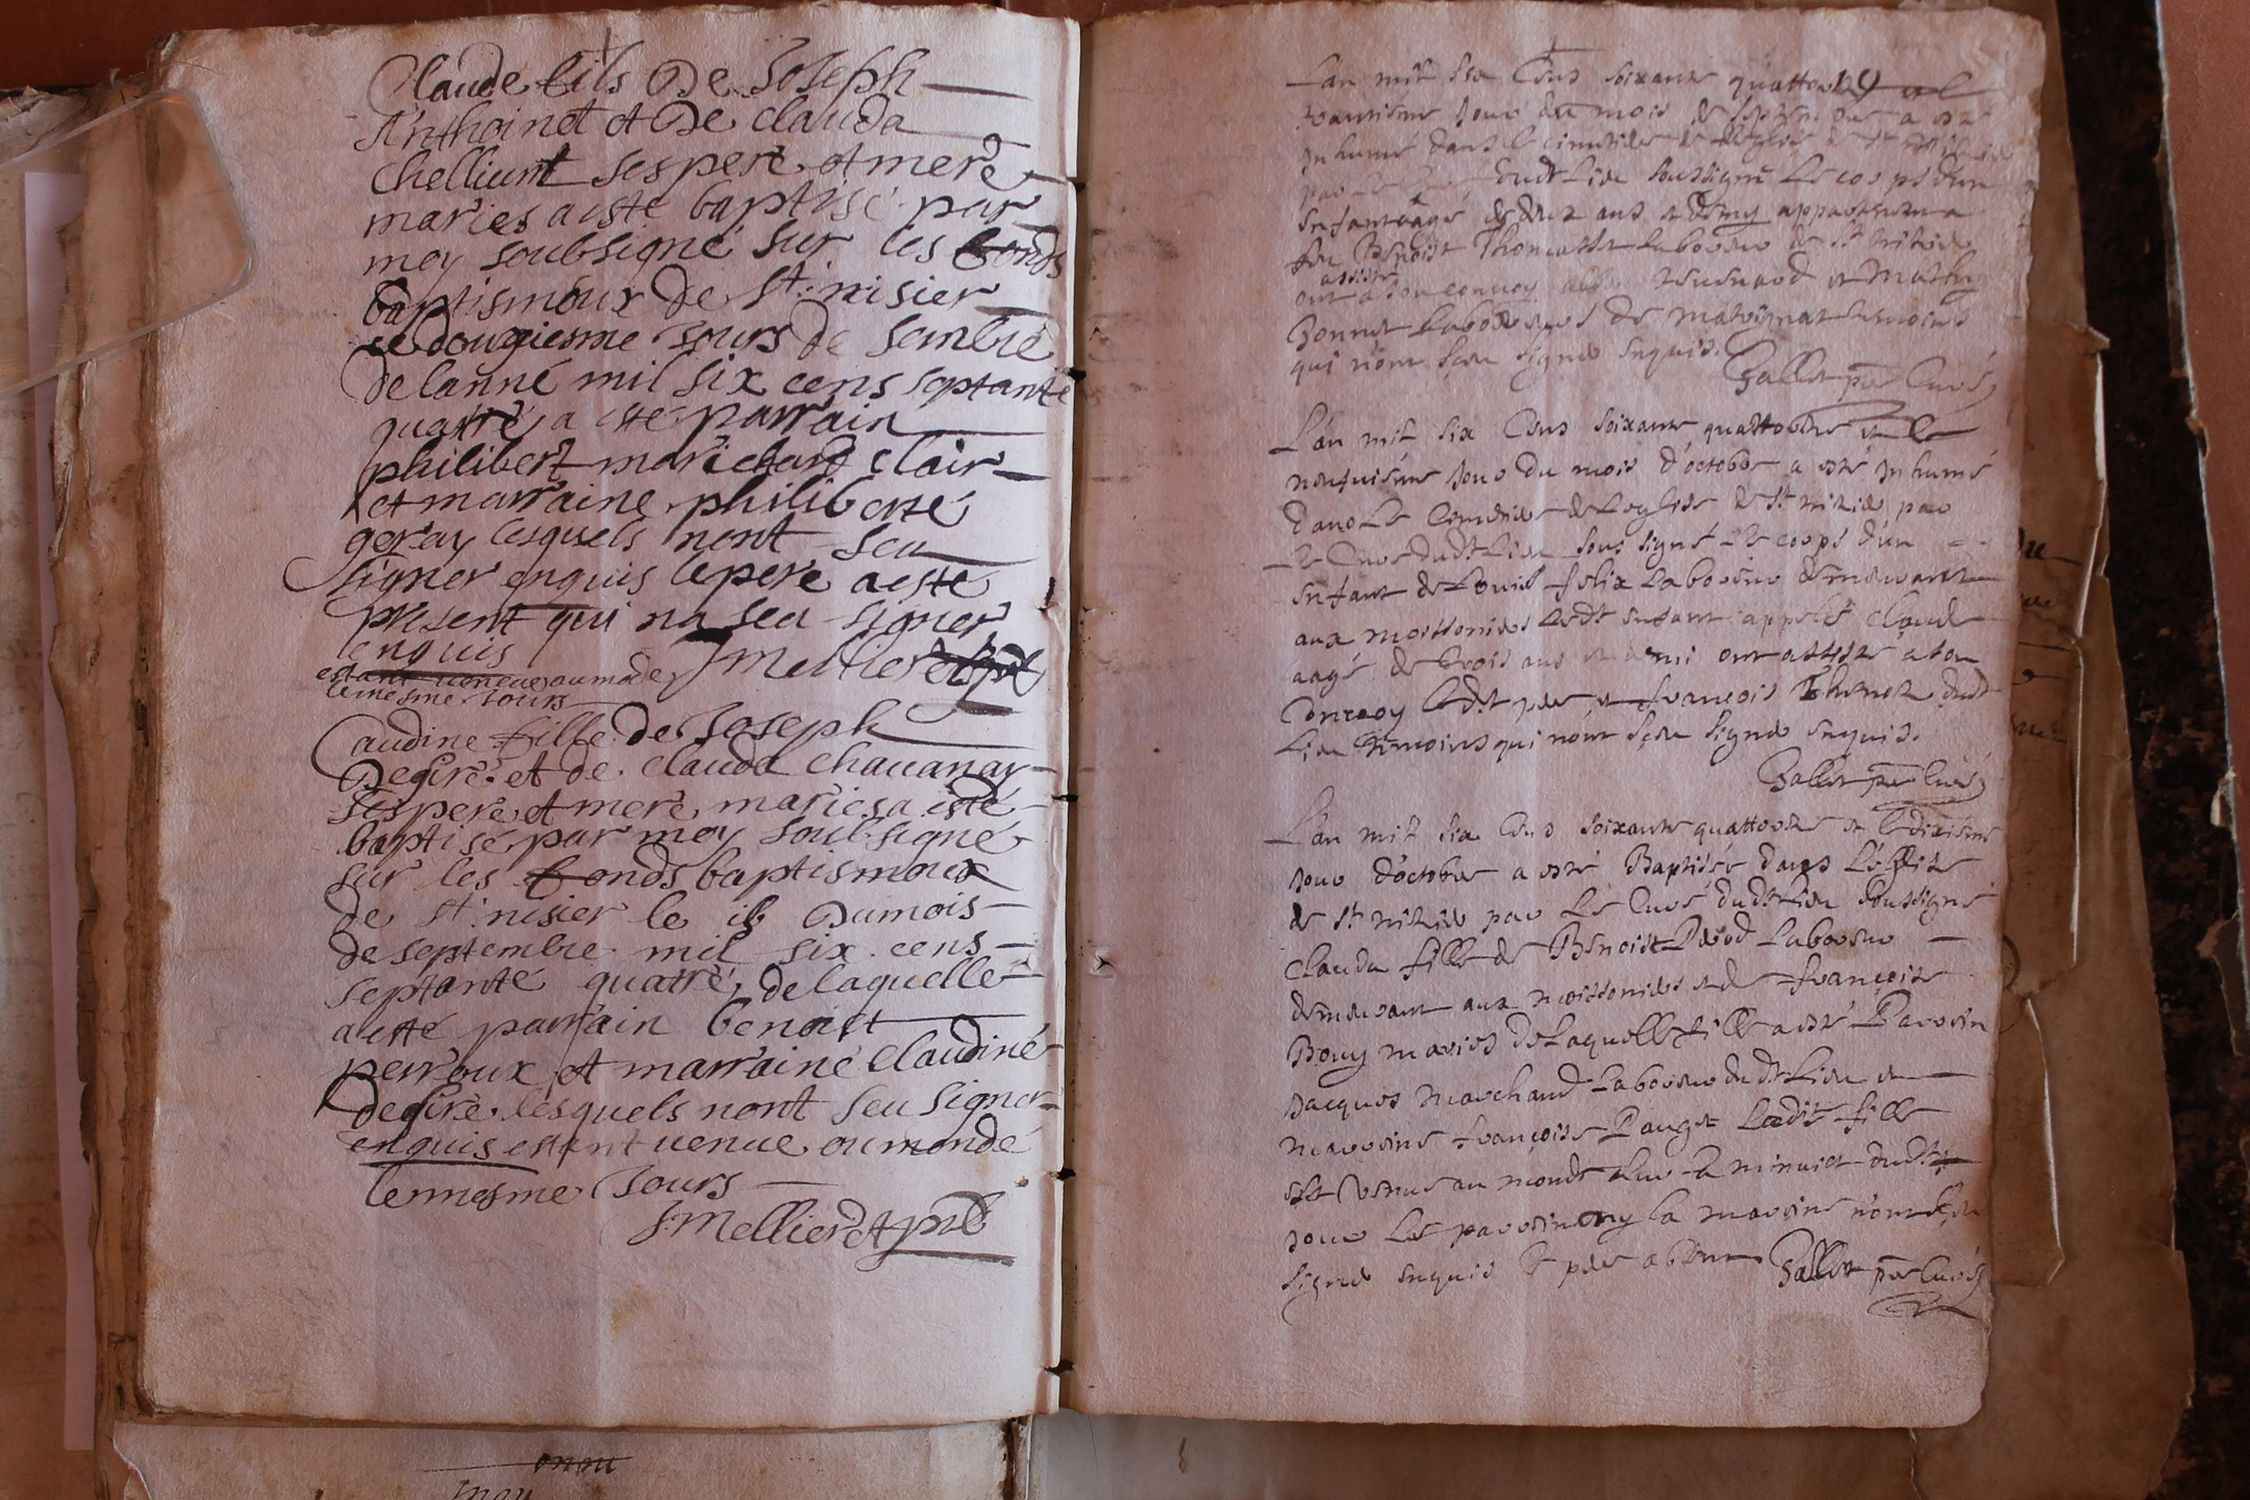 Claude fils De Joseph
Anthoinet et De clauda
chelliunt ses pere et mere
maries a esté baptisé par
moy soubsigné sur les fonds
baptismoux de st nisier
le dougiesme Jours de sembre
de lanné mil six cens septante
quatré a esté parrain
philibert marichard clair
et marraine philiberte
geray lesquels nont seu
signer enquis le pere a esté
present qui na seu signer
enquis
estant venue au monde J Mellier et pbr
le mesme Jours
Caudine fille de Joseph
Degiré et de clauda chauanay
ses pere et mere maries a esté
baptisé par moy soubsigné
sur les fonds baptismoux
de st nisier le 16 Du mois
de septembre mil six cens
septante quatré de laquelle
a esté parrain benoist
perroux et marraine Claudiné
degiré lesquels nont seu signer
enquis estant venue au mondé
le mesme Jours
J Mellier et pbr
Lan mil six Cens soixante quattorze et le
jour du mois de septembre a esté
Inhumé dans le cimetiere de Leglise de St nisier
par le Curé dudt Lieu soussigné Le corps dun
enfant aagé de deux ans et demy appartenant a
feu Benoist Thomasset Laboureur de St nisier
assisté
ont a son convoy et Mathy
Bonnet Laboureurs de malvignat tesmoins
qui n'ont sceu signer Enquis.
Gallet pbr Curé
L'an mil six Cens soixante quattorze et le
neufuiéme Jour du mois d'octobre a esté Inhumé
dans Le Cimetiere de Leglise de St nisier par
Le Curé dudt Lieu sous signé Le corps d'un
enfant de Louis felix Laboureur demeurant
aux moissonier Ledt enfant appelé Claude
aagé de trois ans et demi ont assisté a son
Convoy Ledt pere et françois Thenet dudt
Lieu temoins qui n'ont sceu signer enquis.
Gallet pbr Curé
L'an mil six Cens soixante quattorze et le dixiéme
Jour d'octobre a esté Baptisée dans L'eglise
de St nisier par Le Curé dudt Lieu soussigné
Clauda fille de Benoist Laboureur
demeurant aux moissonier et de françoise
Bouy mariés de Laquelle fille a esté Parrain
Jacques marchand Laboureur dudt Lieu et
marraine françoise Pauget Ladite fille
est venue au monde sur la minuict dudt
Jour Le parrain ny la marraine n'ont sceu
signer enquis le pere absent Gallet pbr Curé